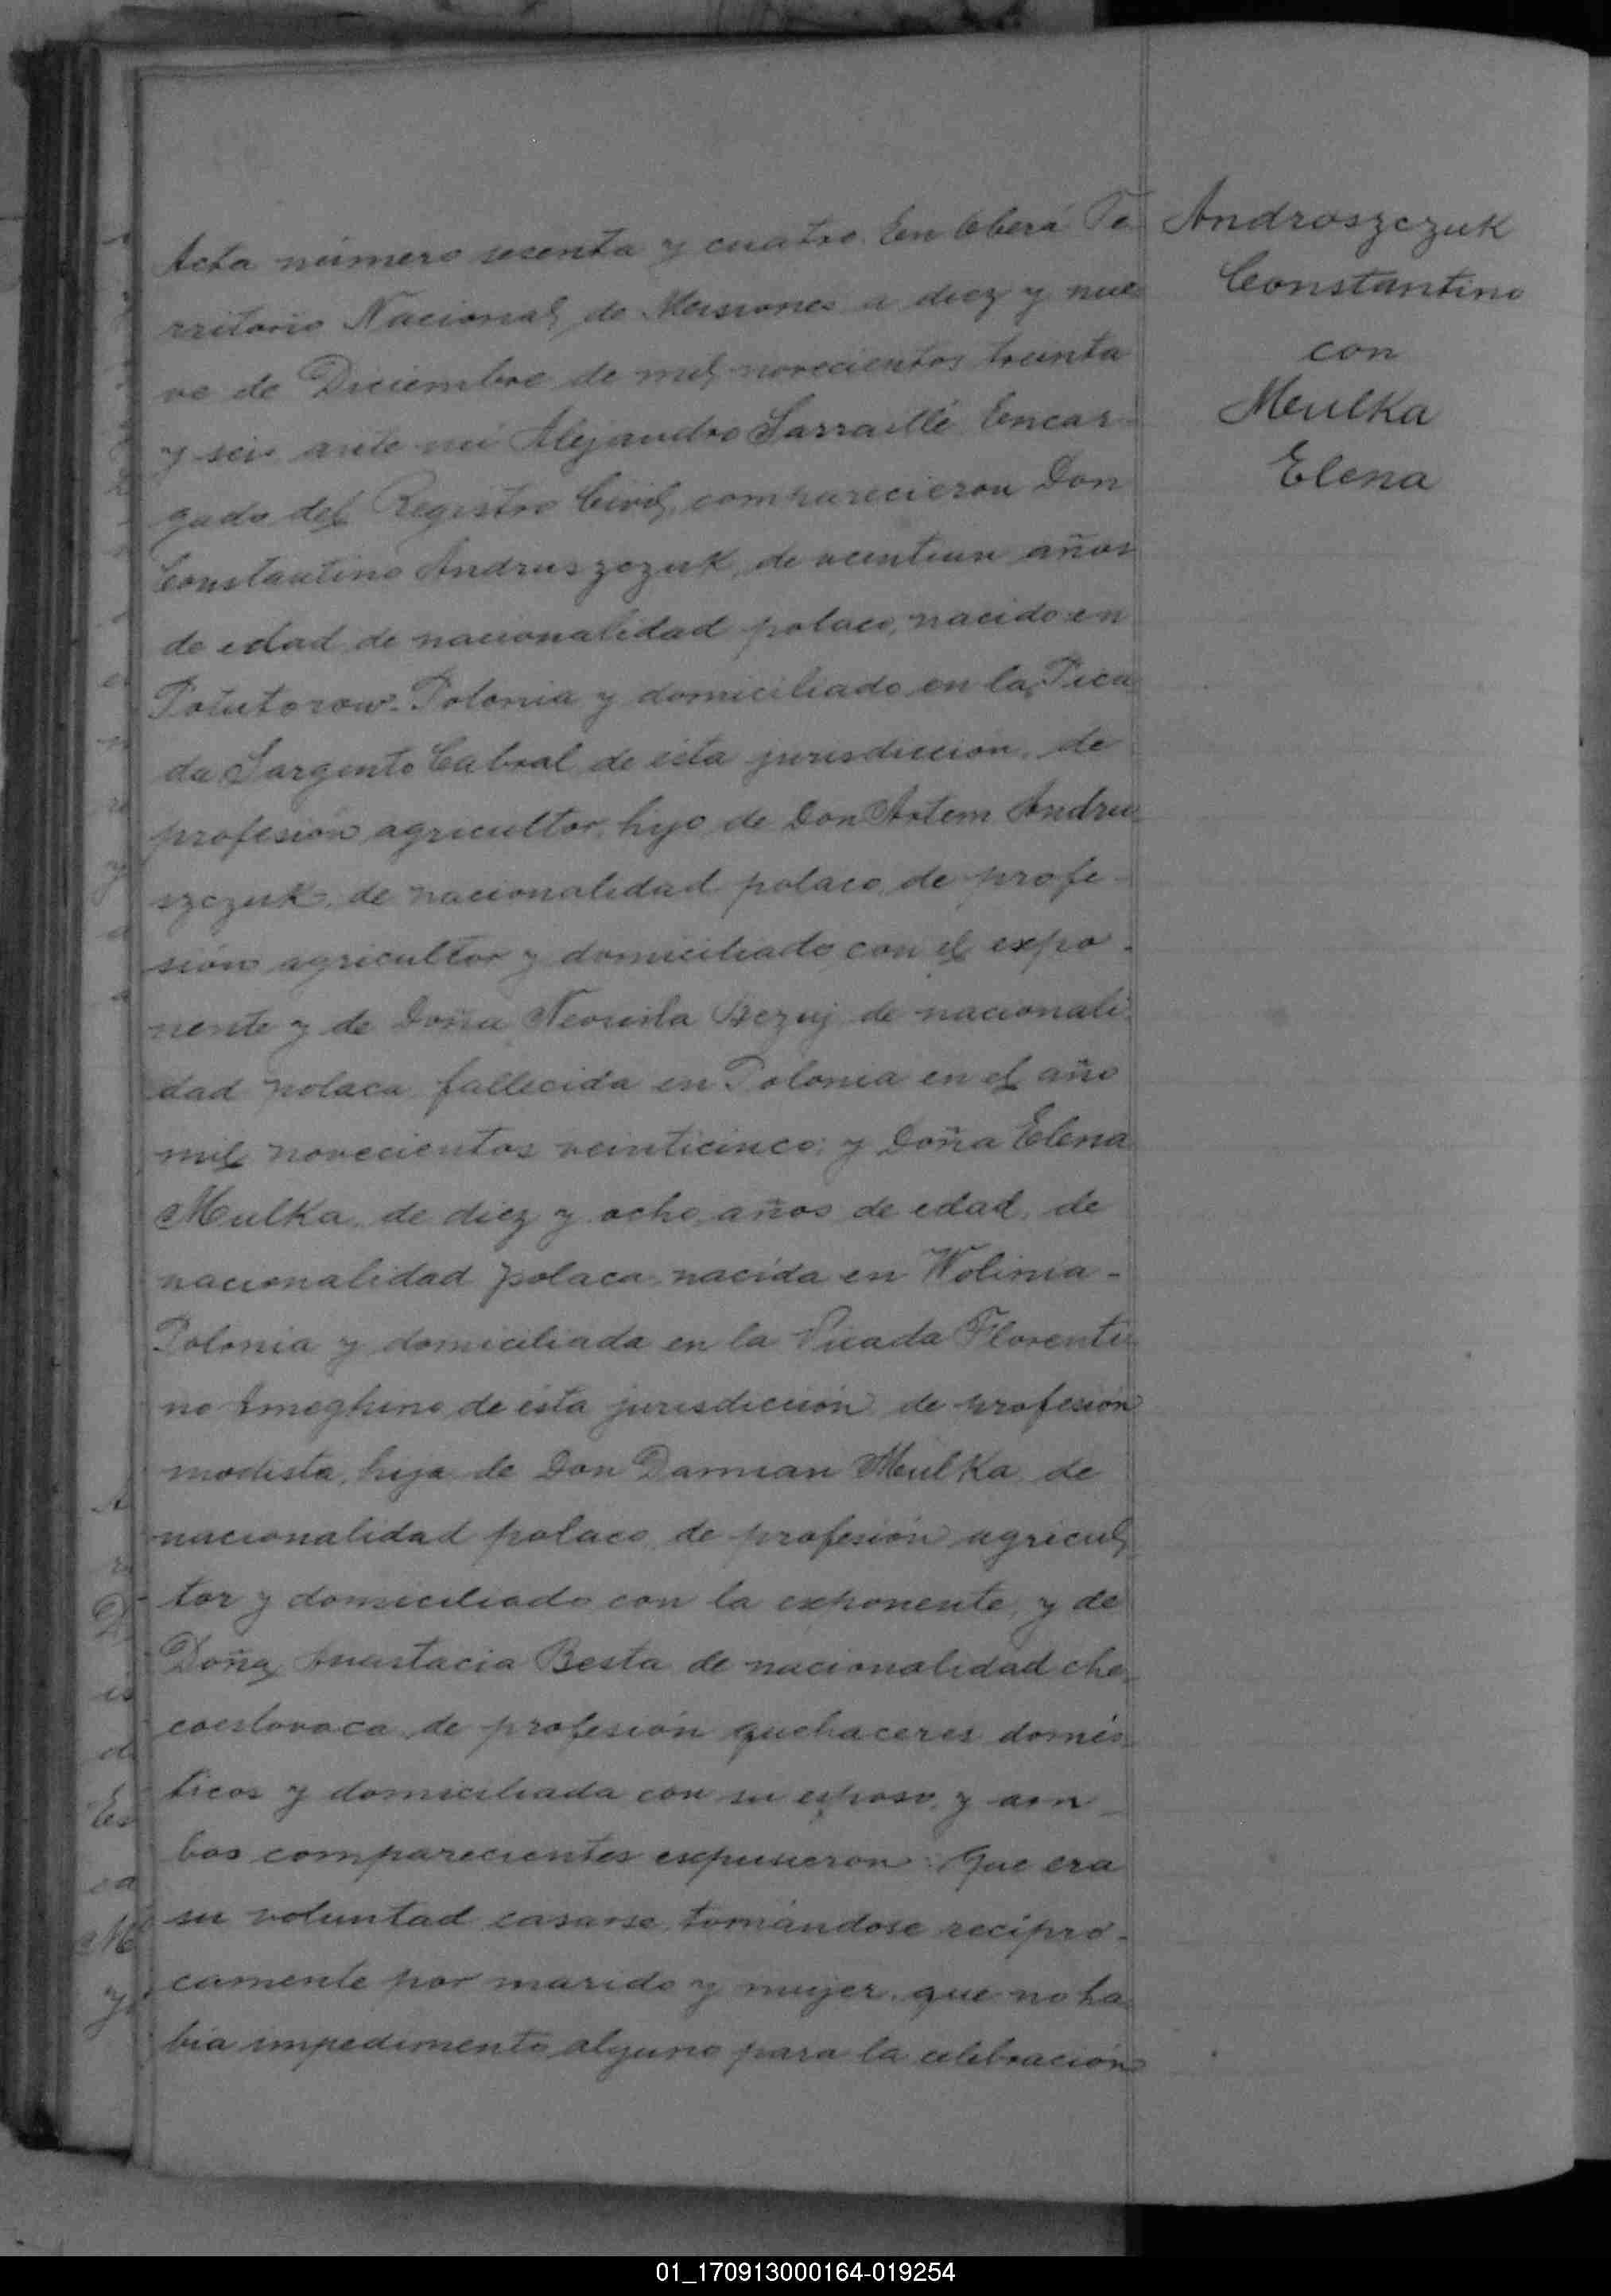 Acta número sesenta y cuatro. En Oberá Te-
rritorio Nacional de Misiones a diez y nue
ve de Diciembre de mil novecientos treinta
y seis ante mi Alejandro Sarraillé Encar-
gado del Registro Civil, comparecieron Don
Constantino Andruszczuk, de veintiun años
de edad de nacionalidad polaco, nacido en
Potutorow-Polonia y domiciliado en la Pica
da Sargento Cabral de ésta jurisdicción, de
profesión agricultor, hijo de Don Artem Andru
szczuk, de nacionalidad polaco, de profe-
sión agricultor y domiciliado con el expo-
nente y de Doña de nacionali-
dad polaca fallecida en Polonia en el año
mil novecientos veinticinco; y Doña Elena
Meulka, de diez y ocho años de edad, de
nacionalidad polaca, nacida en Wolinia-
Polonia y domiciliada en la Picada Florenti
no Ameghino de ésta jurisdicción, de profesión
modista, hija de Don Damian Meulka, de
nacionalidad polaco, de profesión agricul
tor y domiciliado con la exponente, y de
Doña Anastacia Besta de nacionalidad che-
coeslovaca, de profesión quehaceres domés-
ticos y domiciliada con su esposo, y am-
bos comparecientes expusieron: Que era
su voluntad casarse, tomándose recípro-
camente por marido y mujer, que no ha-
bía impedimento alguno para la celebración
Androszczuk
Constantino
con
Meulka
Elena
01_170913000164-019254